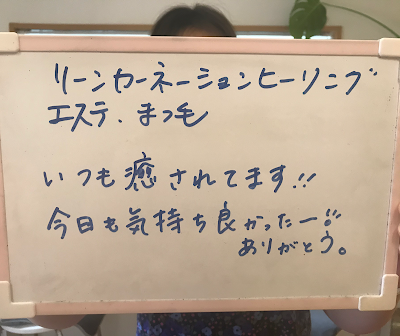 リーンカーネーションヒーリング
エステ.まつ毛
いつも癒されてます!!
今日も気持ち良かったー!!
ありがとう。